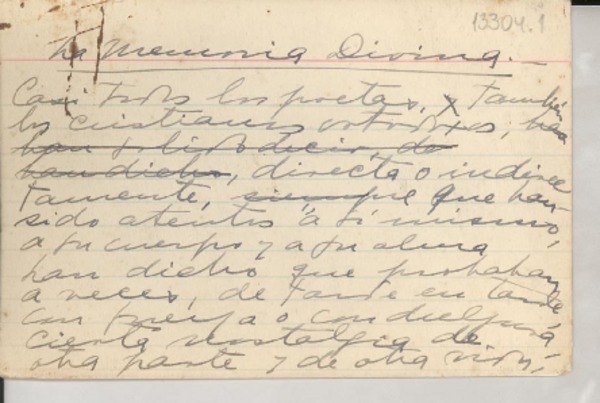 13304.1
La Memoria Divina.—
Casi todos los poetas, y también
los cristianos ortodoxos, han
han solido decir, de
han dicho, directa o indirec
tamente, siempre que han
sido atentos a sí mismo,
a su cuerpo y a su alma
han dicho que probaban
a veces, de tarde en tarde
con fuerza o con dulzura
cierta nostalgia de
otra parte y de otra